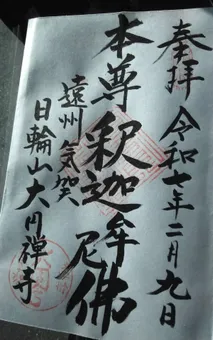 奉拝 令和七年二月九日
本尊 釈迦牟尼佛
遠州気賀
日輪山大円禅寺